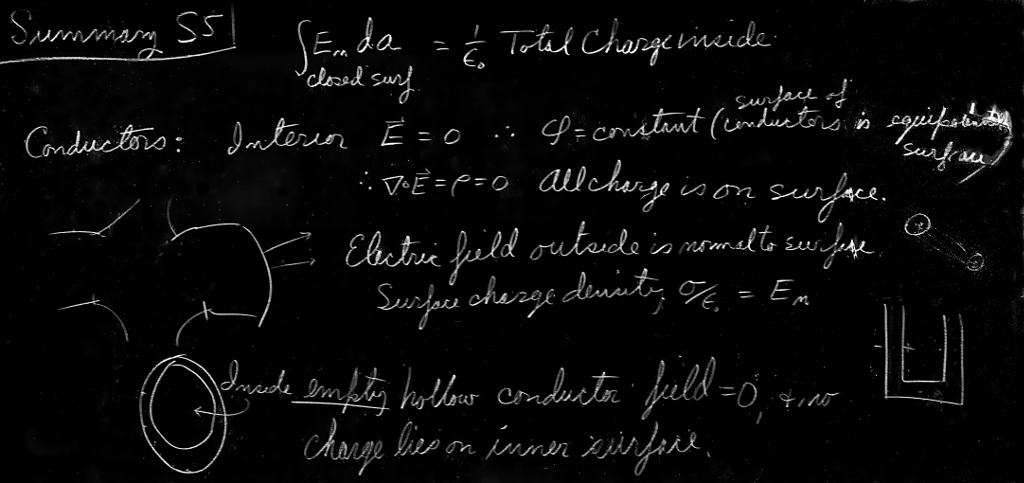 Summary S5
∫E_n da = 1/ε₀ Total Charge inside
closed surf.
surface of
Conductors: Interior E⃗ = 0 ∴ φ = constant (conductors is equipotential
surface)
∴ ∇·E⃗ = ρ = 0 All charge is on surface.
Electric field outside is normal to surface.
Surface charge density, σ/ε₀ = E_n
Inside empty hollow conductor field = 0, & no
charge lies on inner surface.